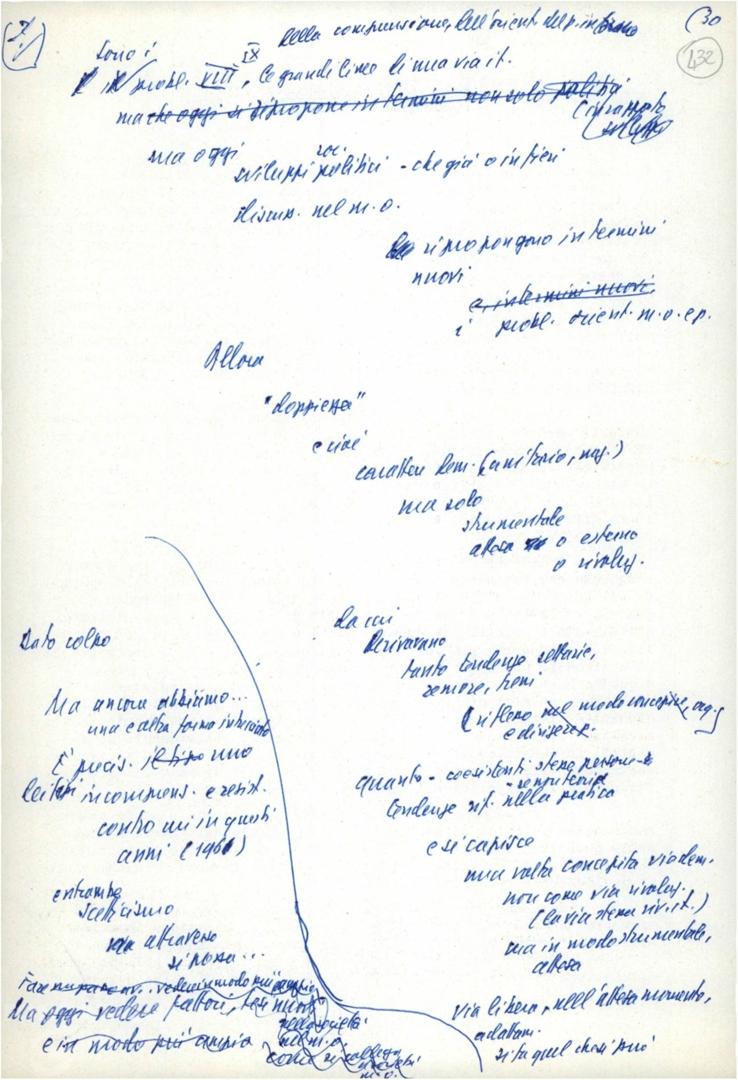 7.)
30
132
della comprensione, dell'orient. del p. intorno
Sono i IX
probl. VIII, le grandi linee di una via it.
ma che oggi si ripropone in termini non solo politici
sviluppi
ma oggi
soc.
sviluppi politici - che già o in fieri
discuss. nel m.o.
ripropongono in termini
nuovi
e, in termini nuovi,
i probl. orient. m.o. e p.
Allora
"doppiezza"
e cioè
carattere dem. (unitario, naz.)
ma solo
strumentale
attesa o esterno
o rivoluz.
da cui
derivavano
tanto tendenze settarie,
remore, freni
(riflesso nel modo concepire, org.)
e dirigere
quanto - coesistenti stesse persone -
tendenze rif. nella pratica
e si capisce
una volta concepita via dem.
non come via rivoluz.
(la via stessa riv. it.)
ma in modo strumentale,
attesa
via libera, nell'attesa momento,
adattam.
si fa quel che si può
Dato colpo
Ma ancora abbiamo...
una e altra forma intrecciata
È precis. il tipo uno
incomprens. e resist.
contro cui in questi
anni (1961)
entrambe
scetticismo
attraverso
si possa...
Ma oggi vedere fattori,
nella società
nel m.o.
e in modo più ampio
come si collega
m.o.